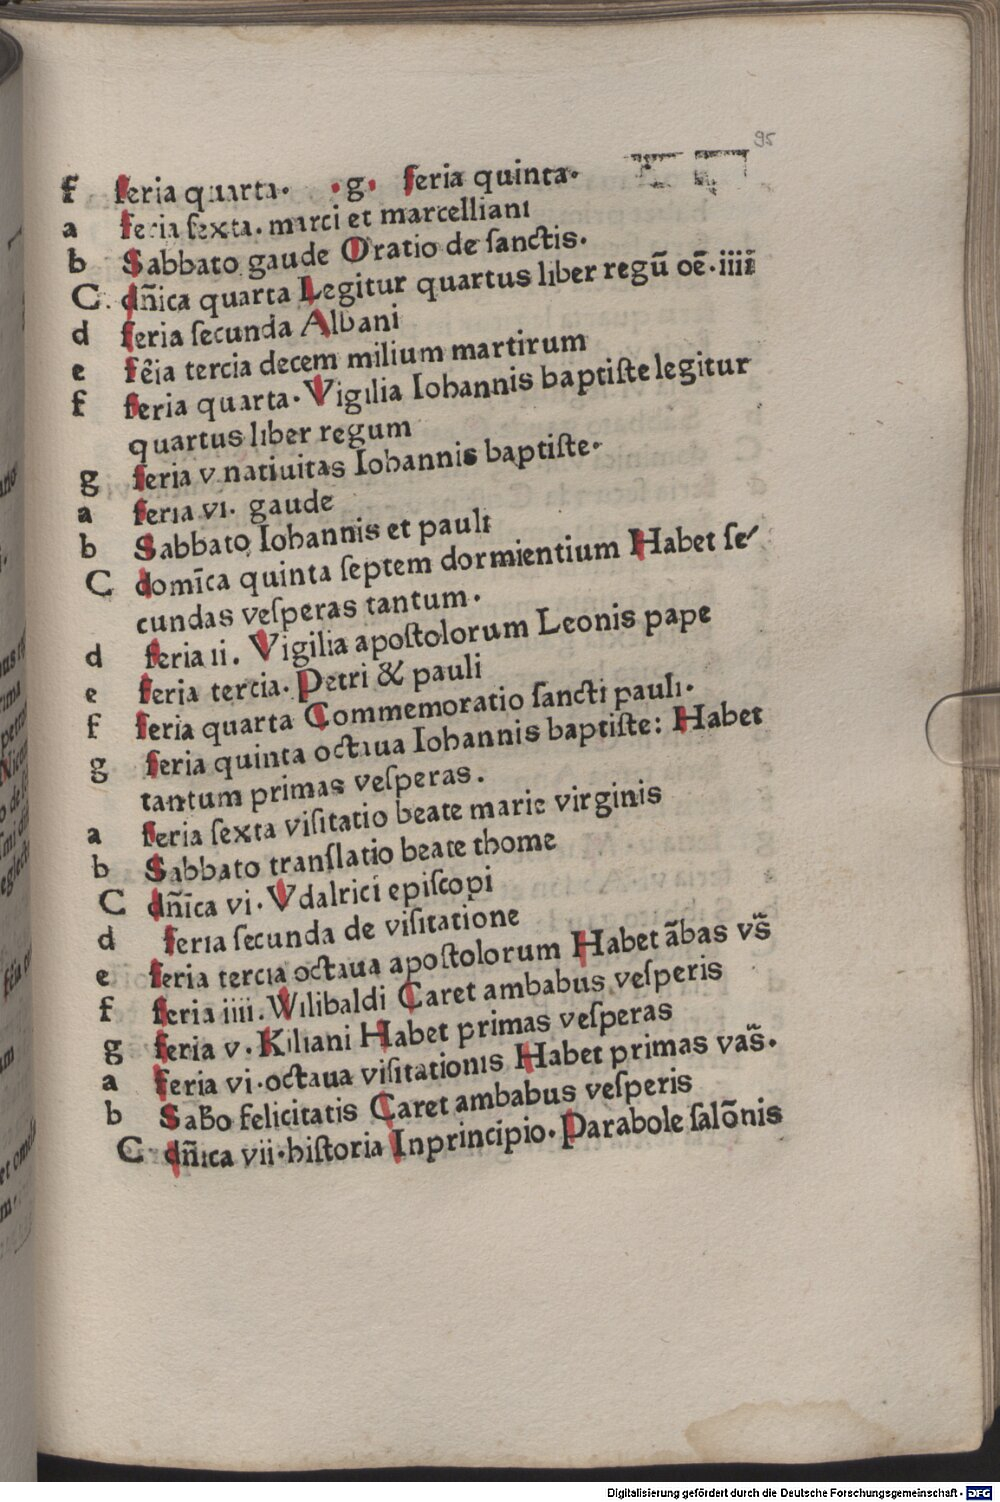 95
f feria quarta. .g. feria quinta.
a feria ſexta. marci et marcelliani
b Sabbato gaude Oratio de ſanctis.
C. dn̄ica quarta Legitur quartus liber regū oē.iiii
d feria ſecunda Albani
e fēia tercia decem milium martirum
f feria quarta. Vigilia Iohannis baptiſte legitur
quartus liber regum
g feria v natiuitas Iohannis baptiſte.
a feria vi. gaude
b Sabbato Iohannis et pauli
C domīca quinta ſeptem dormientium Habet ſe/
cundas veſperas tantum.
d feria ii. Vigilia apoſtolorum Leonis pape
e feria tercia. Petri & pauli
f feria quarta Commemoratio ſancti pauli.
g feria quinta octaua Iohannis baptiſte: Habet
tantum primas veſperas.
a feria ſexta viſitatio beate marie virginis
b Sabbato tranſlatio beate thome
C dn̄ica vi. Vdalrici epiſcopi
d feria ſecunda de viſitatione
e feria tercia octaua apoſtolorum Habet ābas vs̄
f feria iiii. Wilibaldi Caret ambabus veſperis
g feria v. Kiliani Habet primas veſperas
a feria vi.octaua viſitationis Habet primas vas̄.
b Sabo felicitatis Caret ambabus veſperis
C dn̄ica vii.hiſtoria Inprincipio. Parabole ſalōnis
Digitalisierung gefördert durch die Deutsche Forschungsgemeinschaft - DFG